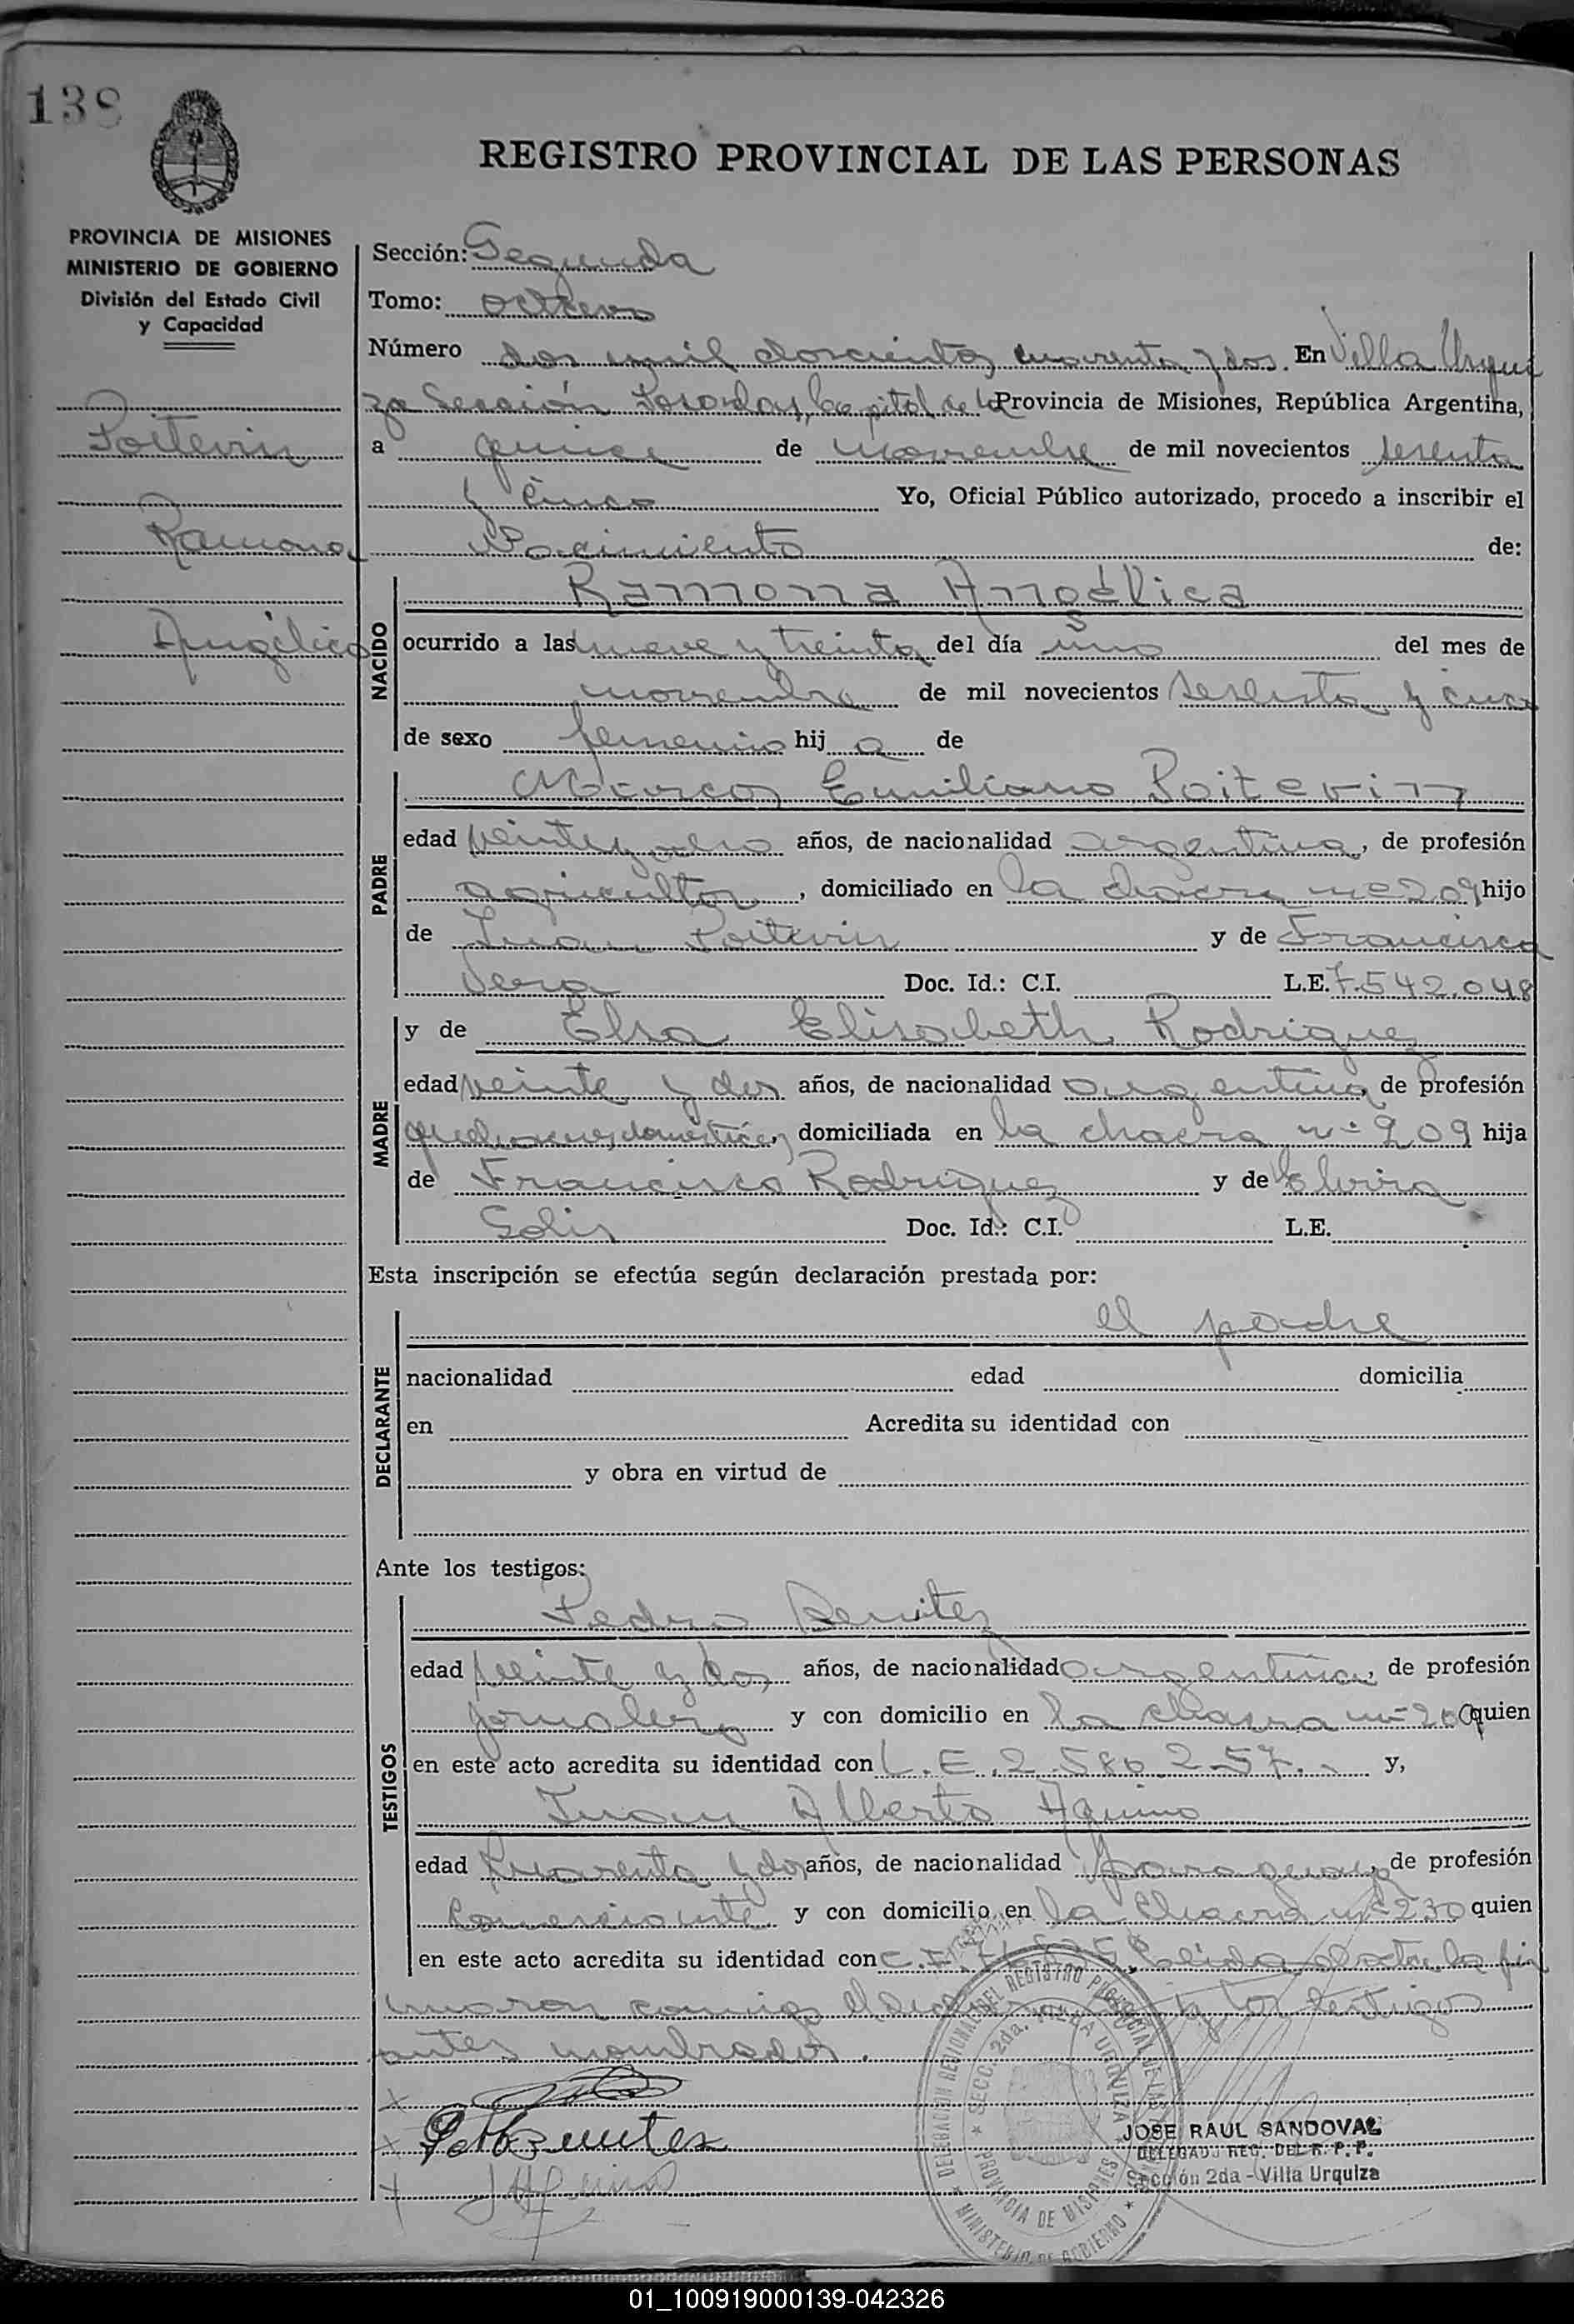 138
REGISTRO PROVINCIAL DE LAS PERSONAS
PROVINCIA DE MISIONES
MINISTERIO DE GOBIERNO
División del Estado Civil
y Capacidad
Poitevin
Ramona
Angélica
Sección: Segunda
Tomo: octavo
Número dos mil doscientos cuarenta y dos. En Villa Urqui
za Sección Posadas, Capital de la Provincia de Misiones, República Argentina,
a quince de noviembre de mil novecientos sesenta
y cinco Yo, Oficial Público autorizado, procedo a inscribir el
Nacimiento de:
NACIDO
Ramona Angélica
ocurrido a las nueve y treinta del día uno del mes de
noviembre de mil novecientos sesenta y cinco
de sexo femenino hij a de
PADRE
Marcos Emiliano Poitevin
edad veinte y ocho años, de nacionalidad argentina, de profesión
agricultor, domiciliado en la chacra nº 209 hijo
de Juan Poitevin y de Francisca
Vera Doc. Id.: C.I. L.E. 7.542.048
MADRE
y de Elsa Elisabeth Rodriguez
edad veinte y dos años, de nacionalidad argentina de profesión
quehaceres domésticos, domiciliada en la chacra nº 209 hija
de Francisco Rodriguez y de Elvira
Solis Doc. Id.: C.I. L.E.
Esta inscripción se efectúa según declaración prestada por:
DECLARANTE
el padre
nacionalidad edad domicilia
en Acredita su identidad con
y obra en virtud de
Ante los testigos:
TESTIGOS
Pedro Benitez
edad veinte y dos años, de nacionalidad argentina, de profesión
jornalero y con domicilio en la chacra nº 209 quien
en este acto acredita su identidad con L.E. 2.586.257. y,
Juan Alberto Aquino
edad cuarenta y dos años, de nacionalidad paraguayo, de profesión
comerciante y con domicilio en la chacra nº 230 quien
en este acto acredita su identidad con Leida el acta, la fir
maron conmigo el y los testigos
antes nombrados.
DELEGACION REGIONAL DEL REGISTRO PROVINCIAL DE LAS
SECC. 2da. VILLA URQUIZA
PROVINCIA DE MISIONES
MINISTERIO DE GOBIERNO
JOSE RAUL SANDOVAL
DELEGADO REG. DEL R. P. P.
Sección 2da - Villa Urquiza
01_100919000139-042326